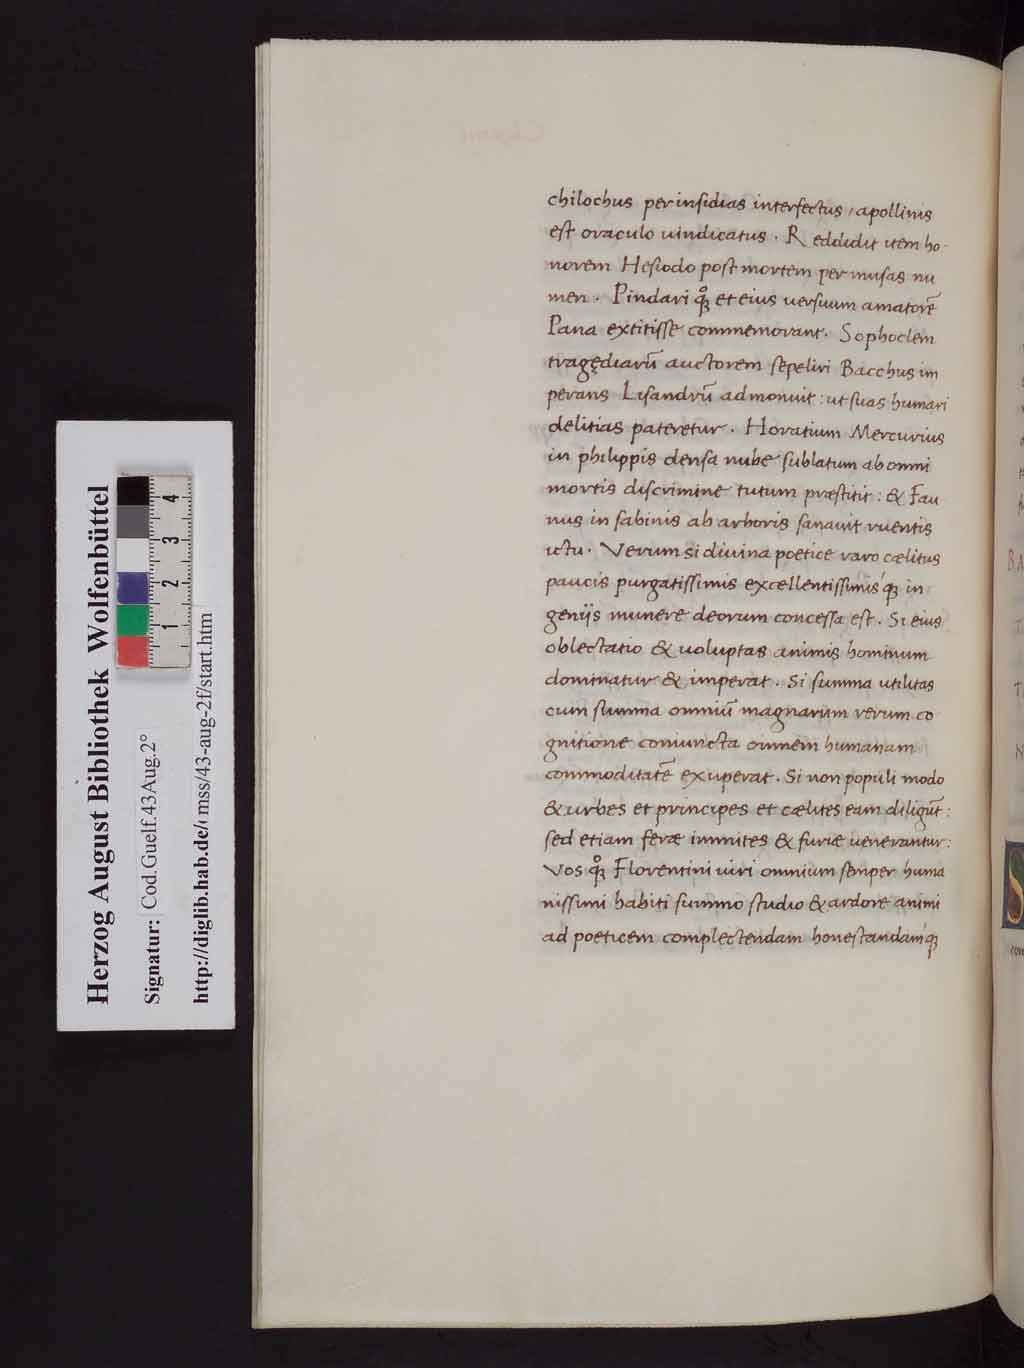 chilochus per insidias interfectus / apollinis
est oraculo uindicatus . Reddidit item ho-
norem Hesiodo post mortem per musas nu
men . Pindari qͦꝫ et eius uersuum amatorē
Pana extitisse commemorant . Sophoclem
tragędiarū auctorem sepeliri Bacchus im
perans Lisandrū admonuit : ut suas humari
delitias pateretur . Horatium Mercurius
in philippis densa nube sublatum ab omni
mortis discrimine tutum præstitit : & Fau
nus in sabinis ab arboris sanauit ruentis
ictu . Verum si diuina poetice raro cælitus
paucis purgatissimis excellentissimisqꝫ in
genijs munere deorum concessa est . Si eius
oblectatio & uoluptas animis hominum
dominatur & imperat . Si summa utilitas
cum summa omniū magnarum rerum co
gnitione coniuncta omnem humanam
commoditatē exuperat . Si non populi modo
& urbes et principes et cælites eam diligūt :
sed etiam feræ immites & furiæ uenerantur :
Vos qͦꝫ Florentini uiri omnium semper huma
nissimi habiti summo studio & ardore animi
ad poeticem complectendam honestandamqꝫ
Herzog August Bibliothek Wolfenbüttel
Signatur: Cod.Guelf.43Aug.2°
http://diglib.hab.de/ mss/43-aug-2f/start.htm
1 2 3 4